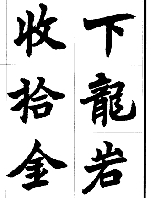 下龍岩
收拾金